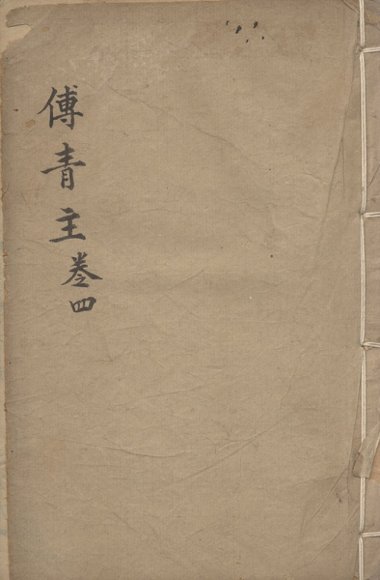 傅青主卷四